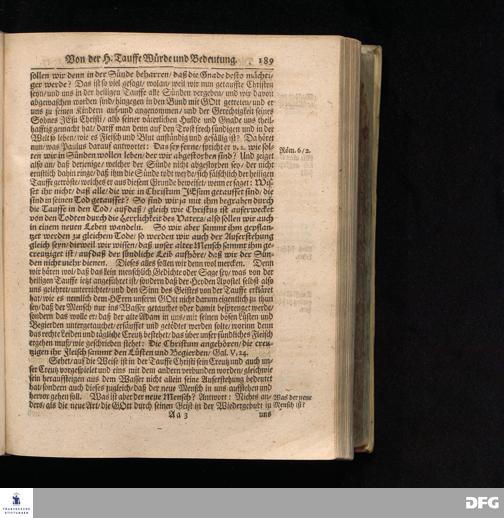 Von der H. Tauffe Würde und Bedeutung. 189
sollen wir denn in der Sünde beharren/ daß die Gnade desto mächti-
ger werde? Das ist so viel gesagt/ wolan/ weil wir nun getauffte Christen
seyn/ und uns in der heiligen Tauffe alle Sünden vergeben/ und wir davon
abgewaschen worden sind/ hingegen in den Bund mit GOtt getreten/ und er
uns zu seinen Kindern auf- und angenommen/ und der Gerechtigkeit seines
Sohnes JEsu Christi/ also seiner väterlichen Hulde und Gnade uns theil-
hafftig gemacht hat/ darff man denn auf den Trost frech sündigen und in der
Welt so leben/ wie es Fleisch und Blut anständig und gefällig ist? Da höret
nun/ was Paulus darauf antwortet: Das sey ferne/ spricht er v. 2. wie sol-
Röm. 6/2.
ten wir in Sünden wollen leben/ der wir abgestorben sind? Und zeiget
also an/ daß derjenige/ welcher der Sünde nicht abgestorben sey/ der nicht
ernstlich dahin ringe/ daß ihm die Sünde todt werde/ sich fälschlich der heiligen
Tauffe getröste/ welches er aus diesem Grunde beweiset/ wenn er saget: Wis-
set ihr nicht/ daß alle/ die wir in Christum JEsum getauffet sind/ die
sind in seinen Tod getauffet? So sind wir ja mit ihm begraben durch
die Tauffe in den Tod/ auf daß/ gleich wie Christus ist auferwecket
von den Todten durch die Herrlichkeit des Vaters/ also sollen wir auch
in einem neuen Leben wandeln. So wir aber sammt ihm gepflan-
tzet werden zu gleichem Tode/ so werden wir auch der Auferstehung
gleich seyn/ dieweil wir wissen/ daß unser alter Mensch sammt ihm ge-
creuziget ist/ auf daß der sündliche Leib aufhöre/ daß wir der Sün-
den nicht mehr dienen. Dieses alles sollen wir denn wol mercken. Denn
wir hören wol/ daß das kein menschlich Gedichte oder Sage sey/ was von der
heiligen Tauffe jetzt angeführet ist/ sondern daß der HErren Apostel selbst also
uns gelehret/ unterrichtet/ und den Sinn des Geistes von der Tauffe erkläret
hat/ wie es nemlich dem HErrn unserm GOtt nicht darum eigentlich zu thun
sey/ daß der Mensch nur ins Wasser getauchet oder damit besprenget werde/
sondern das wolle er/ daß der alte Adam in uns/ mit seinen bösen Lüsten und
Begierden untergetauchet/ ersäuffet und getödtet werden solte/ worinn denn
das rechte Leiden und tägliche Creutz bestehet/ das über unser sündliches Fleisch
ergehen muß/ wie geschrieben stehet: Die Christum angehören/ die creu-
zigen ihr Fleisch sammt den Lüsten und Begierden/ Gal. V. 24.
Sehet/ auf die Weise ist in der Tauffe Christi sein Creutz und auch un-
ser Creutz vorgespielet und eins mit dem andern verbunden worden/ gleich wie
sein heraufsteigen aus dem Wasser nicht allein seine Auferstehung bedeutet
hat/ sondern auch dieses zugleich/ daß der neue Mensch in uns aufstehen und
hervor gehen soll. Was ist aber der neue Mensch? Antwort: Nichts an-
Was der neue
ders/ als die neue Art/ die GOtt durch seinen Geist in der Wiedergeburt in
Mensch ist?
Aa 3 uns
FRANCKESCHE
STIFTUNGEN
DFG